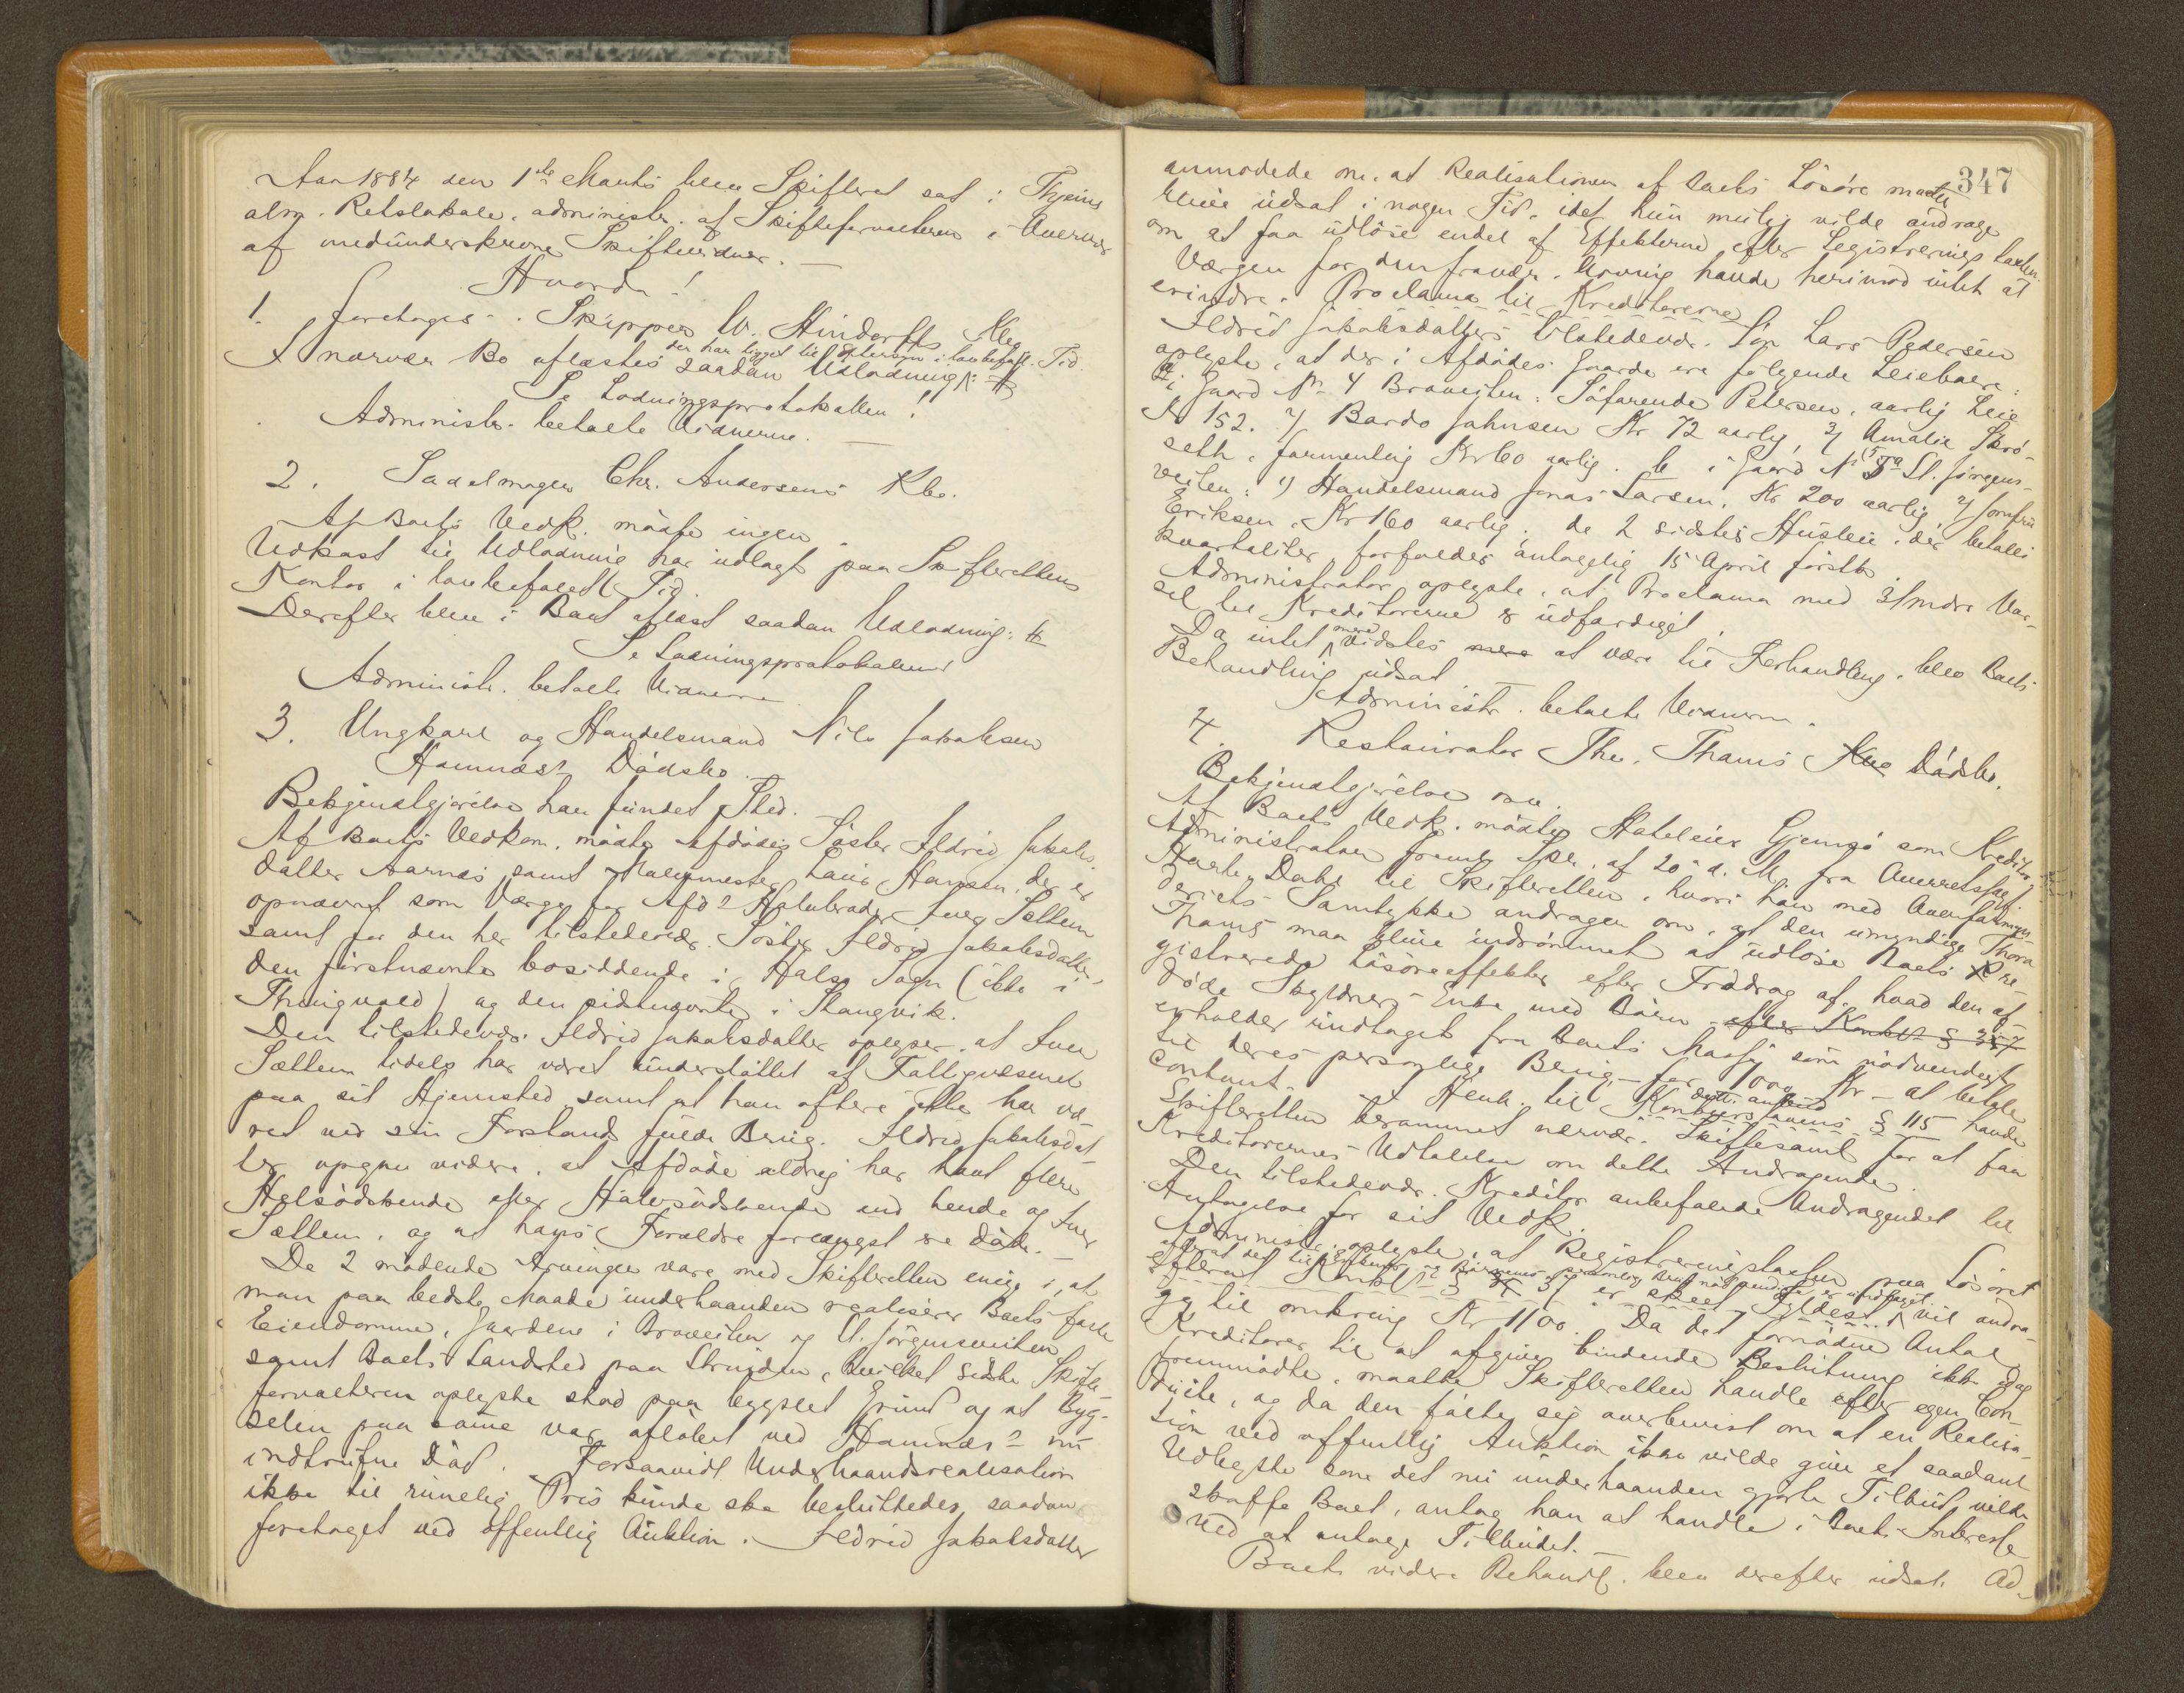 Aar 1884 den 1ste Marts blev Skifteret sat i Thjems
alm. Retslokale, administr. af Skifteforvalteren i Overvær
af medunderskrevne Skiftevidner. —
Hvorda!
1. foretoges. Skipper W. Hindorffs
I nærvær. Bo oplæstes saadan Udlodning der har ligget til Eftersyn i lovbefalt Tid:
Se Lodningsprotokollen!
Administr. betalte Vidnerne. —
2. Sadelmager Chr. Andersens Kbo.
Af Boets Vedk. mødte ingen
Udkast til Udlodning har udlagt paa Skifterettens
Kontor i lovbefalet Tid.
Derefter blev i Boet oplæst saadan Udlodning:
Se Lodningsprotokollen
Administr. betalte Vidnerne
3. Ungkarl og Handelsmand Nils Jakobsen
Hamnæs' Dødsbo.
Bekjendtgjørelse har fundet Sted.
Af Boets Vedkom. mødte Afdødes Søster Ildrid Jakobs-
datter Aarnæs samt Malermester Lauis Hansen, der er
opnævnt som Værge for Afd. Halvbroder Iver Sættem
samt for den her tilstedevær. Søster Ildrid Jakobsdatter,
den førstnævnte bosiddende i Halse Sogn (ikke i
Thingvold) og den sidstnævnte i Stangvik.
Den tilstedevær. Ildrid Jakobsdatter oplyser, at Iver
Sættem tidels har været understøttet af Fattigvæsenet
paa sit Hjemsted samt at han oftere ikke har væ-
ret ved sin Forstands fulde Brug. Ildrid Jakobsdat-
ter opgav videre, at Afdøde aldrig har havt flere
Helsødskende eller Halvsødskende end hende og Iver
Sættem, og at hans Forældre forlængst ere døde. —
De 2 mødende Arvinger vare med Skifteretten enige i, at
man paa bedste Maade underhaanden realiserer Boets faste
Eiendomme, Gaardene i Braveiten og St. Jørgensveiten
samt Boets Landsted paa Strinden, hvilket sidste Skifte-
forvalteren oplyste stod paa bygslet Grund og at Byg-
selen paa samme var afløbet ved Hamnæs' nu
indtrufne Død. Forsaavidt Underhaandsrealisation
ikke til rimelig Pris kunde ske besluttedes saadan
foretaget ved offentlig Auktion. Ildrid Jakobsdatter
347
anmodede om, at Realisationen af Boets Løsøre maatte
blive udsat i nogen Tid, idet hun mulig vilde andrage
om at faa udløse endel af Effekterne efter Registrerings taxten.
Værgen for den fravær. Arving havde herimod intet at
erindre. Proclama til Kreditorerne
Ildrid Jakobsdatters tilstedevær. Søn Lars Pedersen
oplyste, at der i Afdødes Gaarde ere følgende Leieboere:
a. i Gaard No 4 Braveiten: Søfarende Petersen, aarlig Leie
Kr 152. 2) Bardo Johnsen Kr 72 aarlig, 3) Amalie Skrø-
seth, formentlig Kr 60 aarlig. b i Gaard No 5a St. Jørgens-
veiten: 1) Handelsmand Jonas Larsen, Kr 200 aarlig, 2) Jomfru
Eriksen, Kr 160 aarlig; de 2 sidstes Husleie, der betales
kvartaliter, forfalder antagelig 15 April førstk.
Administrator oplyste, at Proclama med 3 Mdrs Var-
sel til Kreditorerne er udfærdiget.
Da intet mere vidstes mere at være til Forhandling, blev Boets
Behandling udsat. —
Administr. betalte Vidnerne.
4. Restauratør The. Thams Kbo Dødsbo.
Bekjendtgjørelse
Af Boets Vedk. mødte Hoteleier Gjemsø som Kreditor.
Administrator freml. Skr. af 20 d. M. fra Overretssagf.
Dahl til Skifteretten, hvori han med Overformyn-
deriets Samtykke andrager om, at den umyndige Thora
Thams maa blive indrømmet at udløse Boets re-
gistrerede Løsøreeffekter efter Fradrag af, hvad den af-
døde Skyldners Enke med Børn efter Konkl § 37
erholder undtaget fra Boets Masse som nødvendigt
til deres personlige Brug — for 1000 Kr — at betale
contant. — I Henh. til Konkurslovens § 115 havde
Skifteretten berammet nærvær. Skiftesaml. for at faa
Kreditorernes Udtalelse om dette Andragende.
Den tilstedevær. Kreditor anbefalede Andragendet til
Antagelse for sit Vedk.
Administr. oplyste, at Registreringstaxten paa Løsøret
efterat det til Enkens og Børnenes personlig Brug nødvendige er undtaget
efterat Konkl § 37 er skeet Fyldest, vil andra-
ge til omkring Kr 1100. Da det fornødne Antal
Kreditorer til at afgive bindende Beslutning ikke idag
fremmødte, maatte Skifteretten handle efter egen Con-
duite, og da den følte sig overbevist om at en Realisa-
tion ved offentlig Auktion ikke vilde give et saadant
Udbytte som det nu underhaanden gjorte Tilbud vilde
skaffe Boet, antog han at handle i Boets Interesse
ved at antage Tilbudet. —
Boets videre Behandl. blev derefter udsat. Ad-